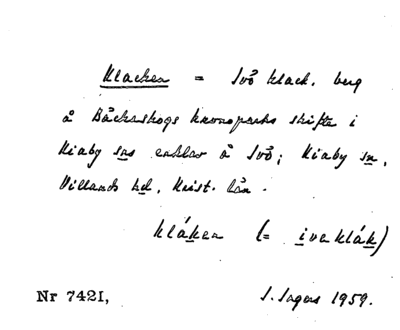 Klacken = Ivö klack. berg
å Bäckaskogs kronoparks skifte i
Kiaby sns enklav å Ivö; Kiaby sn,
Villands hd, Krist. län.
kláken (= iveklák)
Nr 7421, I. Ingers 1959.